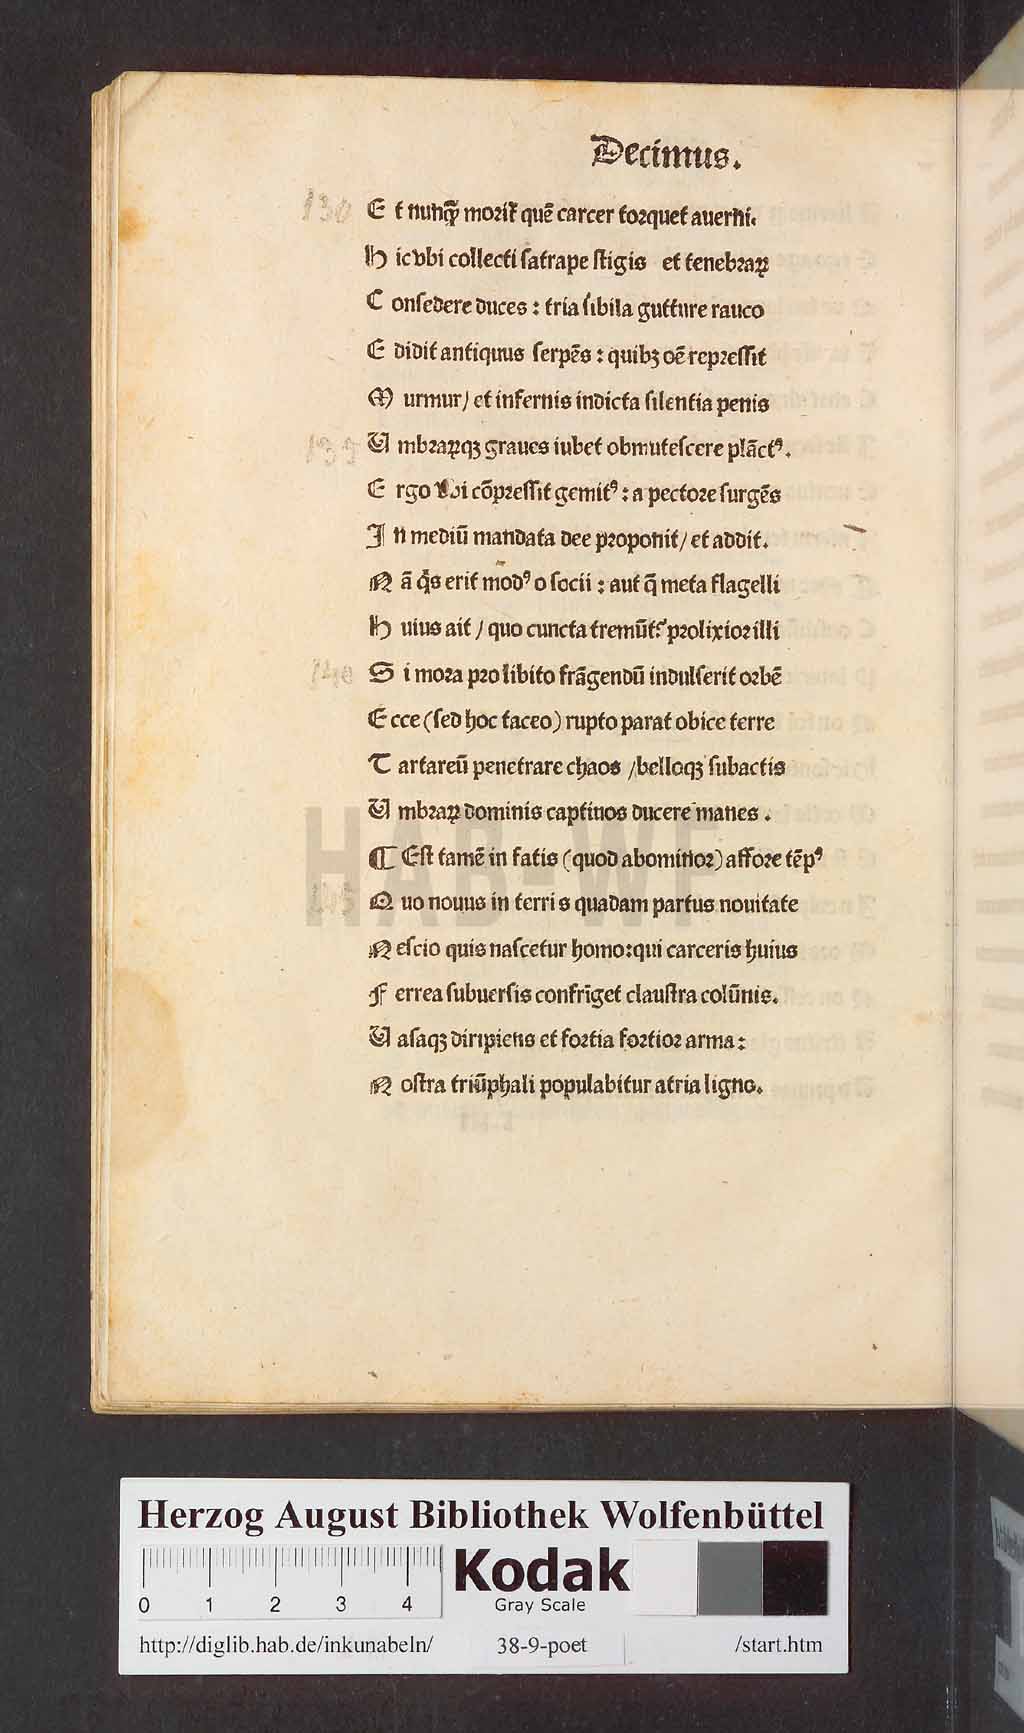 Decimus.
130 Et nunꝙ̃ moriꝛ quē carcer torquet auerni.
Hic vbi collecti satrape stigis et tenebraꝝ
Consedere duces : tria sibila gutture rauco
Edidit antiquus serpēs : quibꝫ oē repressit
Murmur / et infernis indicta silentia penis
135 Vmbraꝝqꝫ graues iubet obmutescere plāctꝰ.
Ergo vbi cōpressit gemitꝰ : a pectore surgēs
In mediū mandata dee proponit / et addit.
Nā q̇s erit modꝰ o socii : aut q̄ meta flagelli
Huius ait / quo cuncta tremūt? prolixior illi
140 Si mora pro libito frāgendū indulserit orbē
Ecce (sed hoc taceo) rupto parat obice terre
Tartareū penetrare chaos / belloqꝫ subactis
Vmbraꝝ dominis captiuos ducere manes .
¶ Est tamē in fatis (quod abominor) affore tēpꝰ
145 Quo nouus in terri s quadam partus nouitate
Nescio quis nascetur homo: qui carceris huius
Ferrea subuersis confrīget claustra colūnis.
Vasaqꝫ diripiens et fortia fortior arma:
Nostra triūphali populabitur atria ligno.
HAB-WF
Herzog August Bibliothek Wolfenbüttel
0 1 2 3 4
Kodak
Gray Scale
http://diglib.hab.de/inkunabeln/ 38-9-poet /start.htm